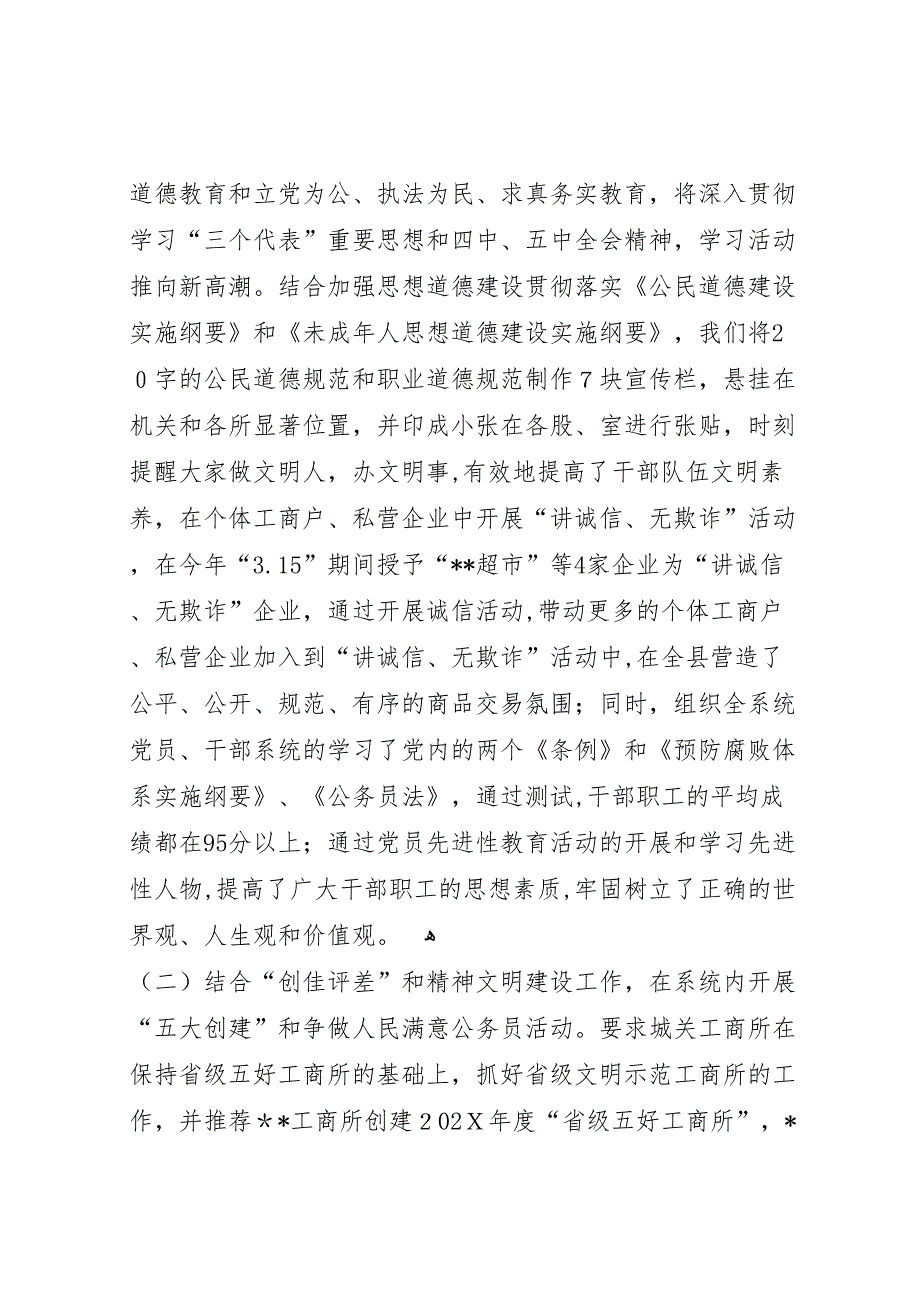 道德教育和立党为公、执法为民、求真务实教育，将深入贯彻
学习“三个代表”重要思想和四中、五中全会精神，学习活动
推向新高潮。结合加强思想道德建设贯彻落实《公民道德建设
实施纲要》和《未成年人思想道德建设实施纲要》，我们将2
0字的公民道德规范和职业道德规范制作７块宣传栏，悬挂在
机关和各所显著位置，并印成小张在各股、室进行张贴，时刻
提醒大家做文明人，办文明事,有效地提高了干部队伍文明素
养，在个体工商户、私营企业中开展“讲诚信、无欺诈”活动
，在今年“3.15”期间授予“**超市”等4家企业为“讲诚信
、无欺诈”企业，通过开展诚信活动,带动更多的个体工商户
、私营企业加入到“讲诚信、无欺诈”活动中,在全县营造了
公平、公开、规范、有序的商品交易氛围；同时，组织全系统
党员、干部系统的学习了党内的两个《条例》和《预防腐败体
系实施纲要》、《公务员法》，通过测试,干部职工的平均成
绩都在95分以上；通过党员先进性教育活动的开展和学习先进
性人物,提高了广大干部职工的思想素质,牢固树立了正确的世
界观、人生观和价值观。 ﻫ
（二）结合“创佳评差”和精神文明建设工作，在系统内开展
“五大创建”和争做人民满意公务员活动。要求城关工商所在
保持省级五好工商所的基础上，抓好省级文明示范工商所的工
作，并推荐＊*工商所创建２02Ｘ年度“省级五好工商所”，*